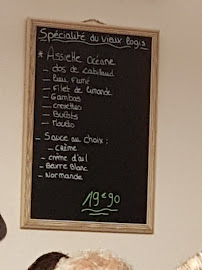 Spécialité du vieux logis
* Assiette Océane
_ dos de Cabillaud
_ Lieu Fumé
_ Filet de Limande
_ Gambas
_ Crevettes
_ Bulots
_ Moules
_ Sauce au choix :
_ Crème
_ crème d'ail
_ Beurre Blanc
_ Normande
19€90